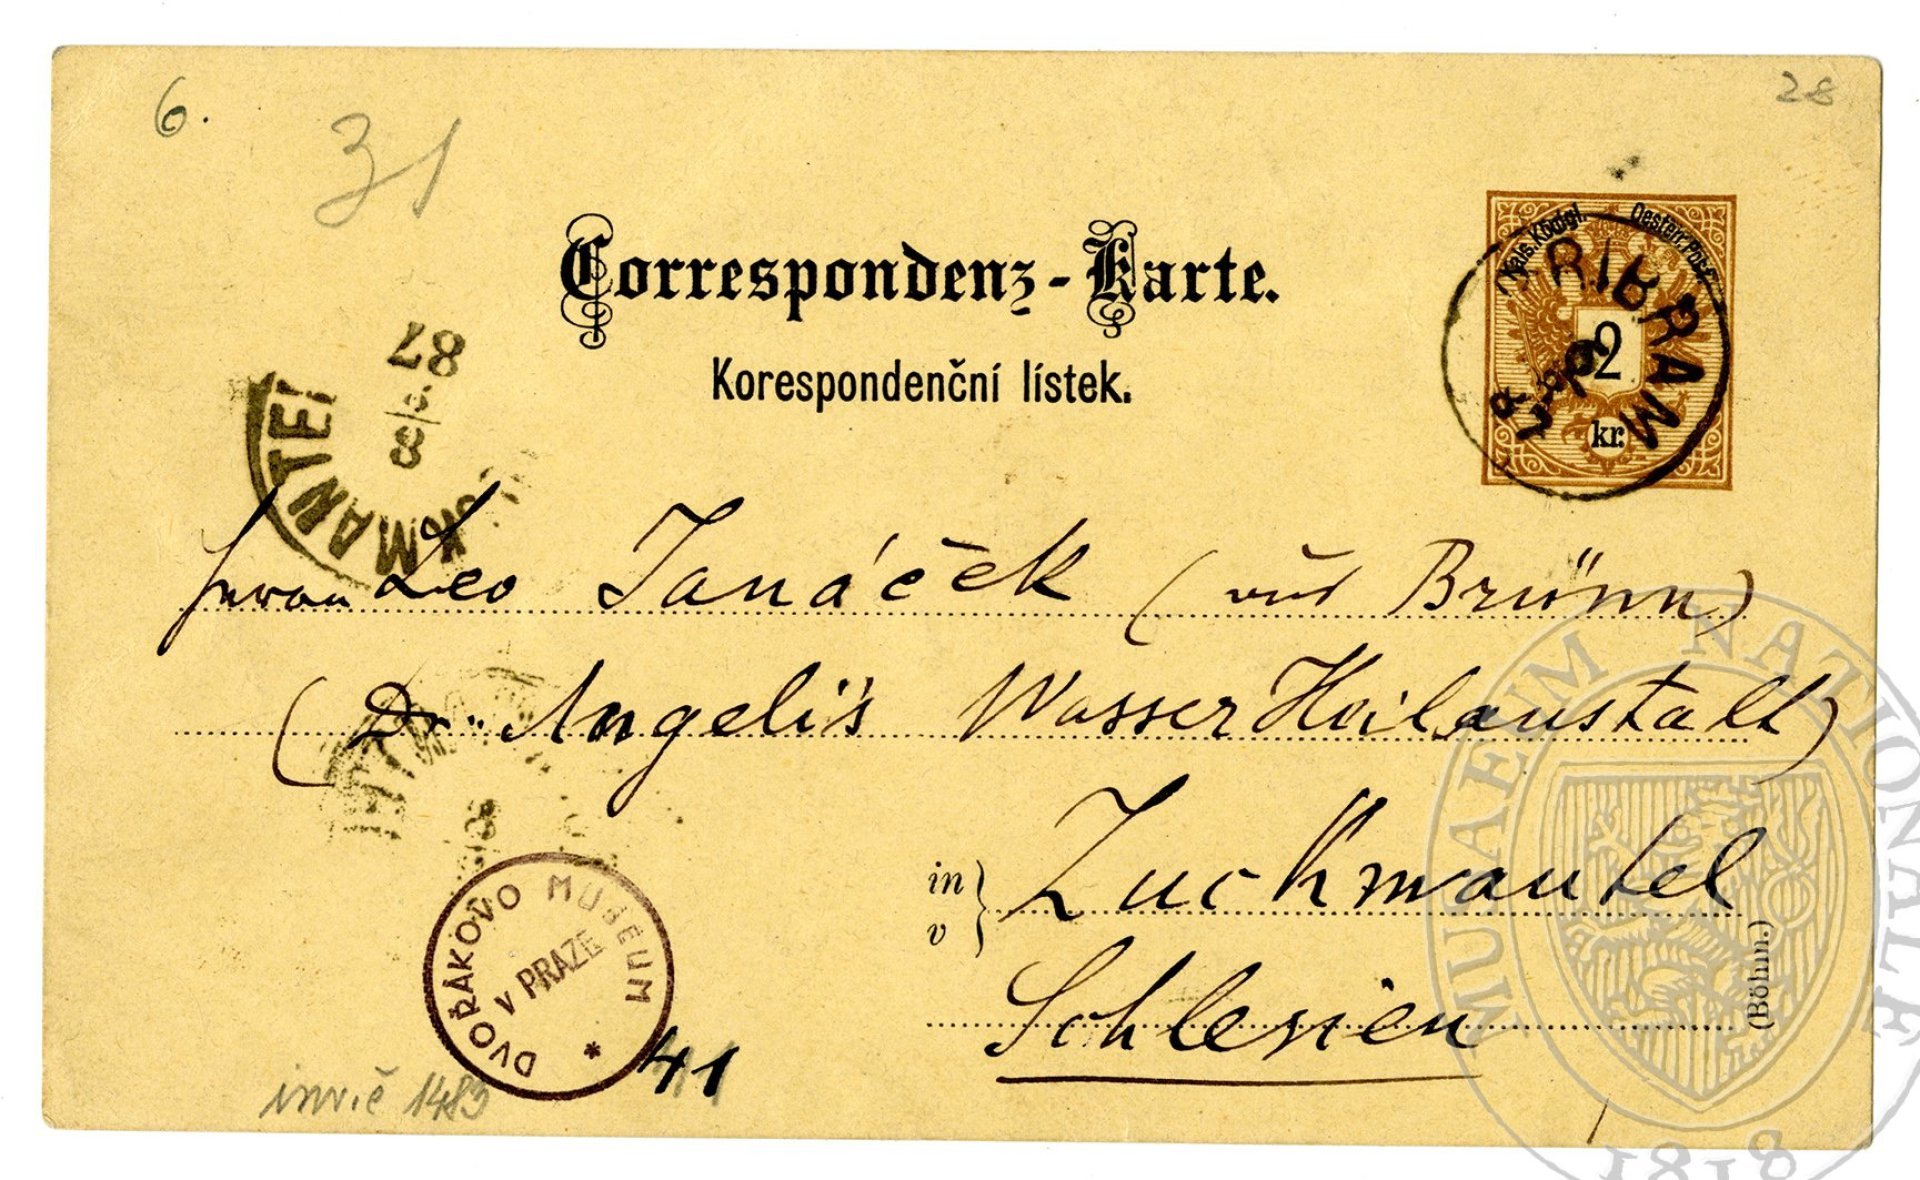 6.
31
28
Correspondenz-Karte.
Korespondenční lístek.
Kais. Königl. Oesterr. Post.
2
kr.
PRIBRAM
87
8
MANTEL
Leo Janáček (aus Brünn)
(Dr. Angeli's Wasser Heilanstalt)
in
v
Zuckmantel
Schlesien
(Böhm.)
DVOŘÁKOVO MUSEUM
v PRAZE
*
41
inv. č 1483
MUSAEUM NATIONALE
1818